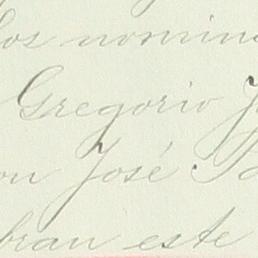 los nomin
Gregorio J
on José P
bran este